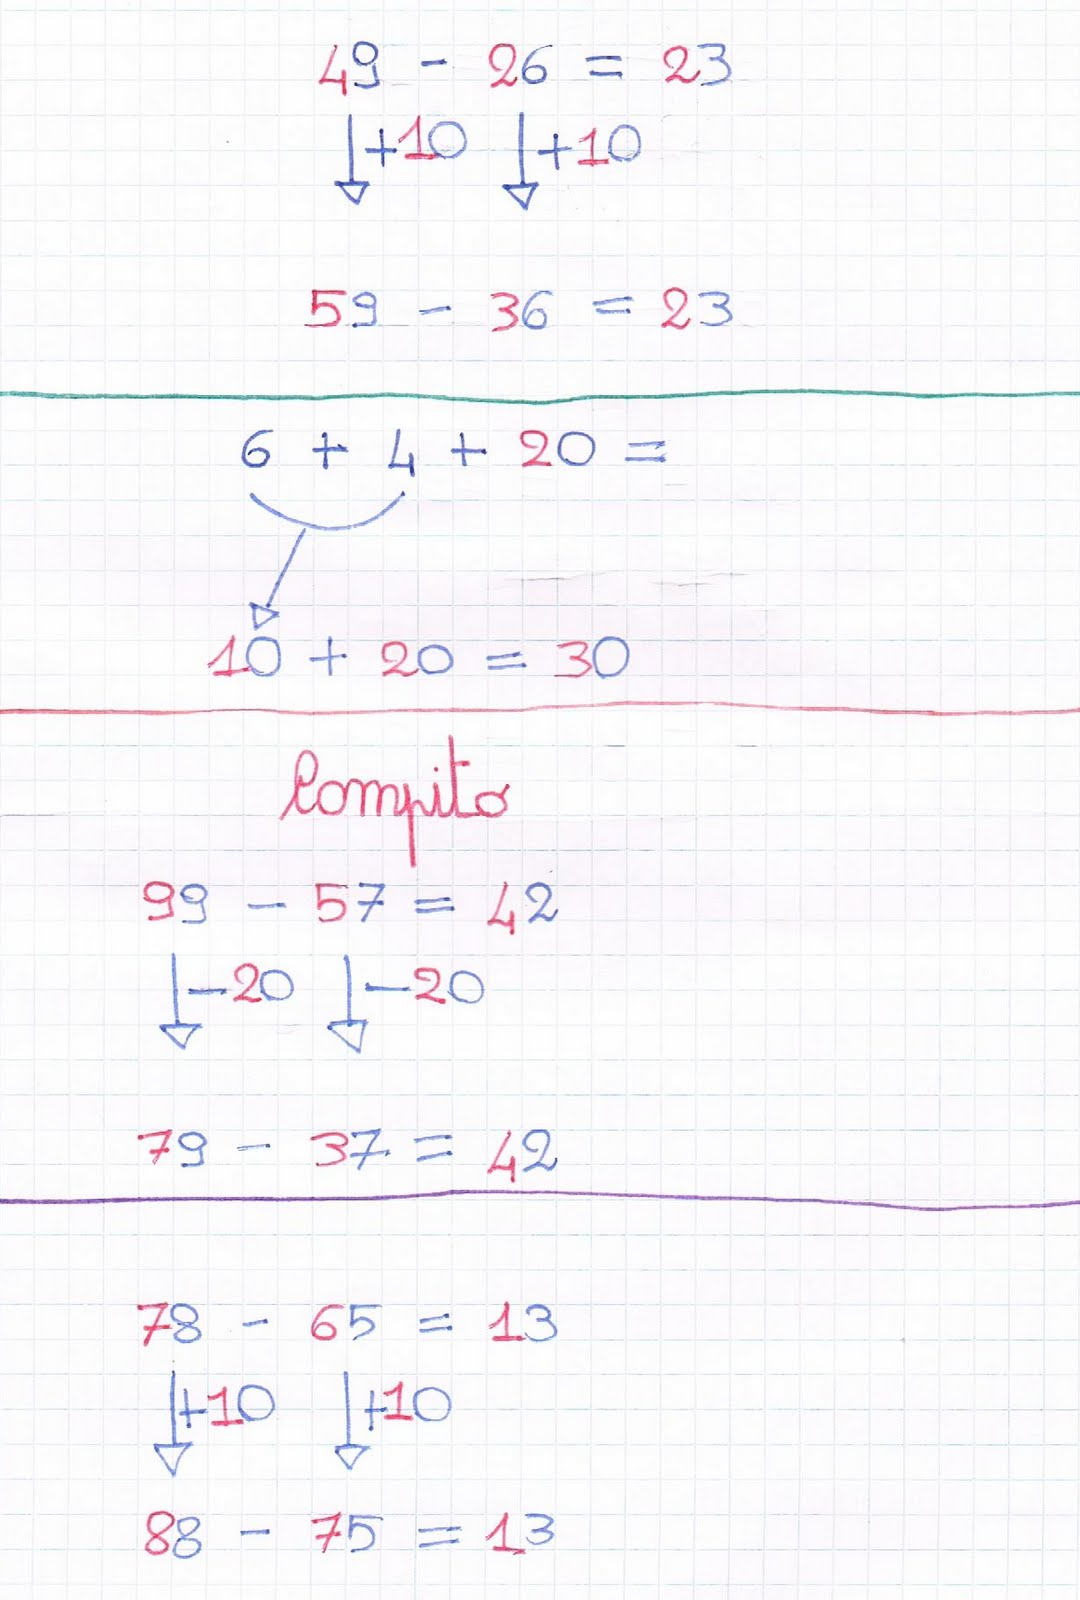 49 - 26 = 23
+10 +10
59 - 36 = 23
6 + 4 + 20 =
10 + 20 = 30
Compito
99 - 57 = 42
-20 -20
79 - 37 = 42
78 - 65 = 13
+10 +10
88 - 75 = 13